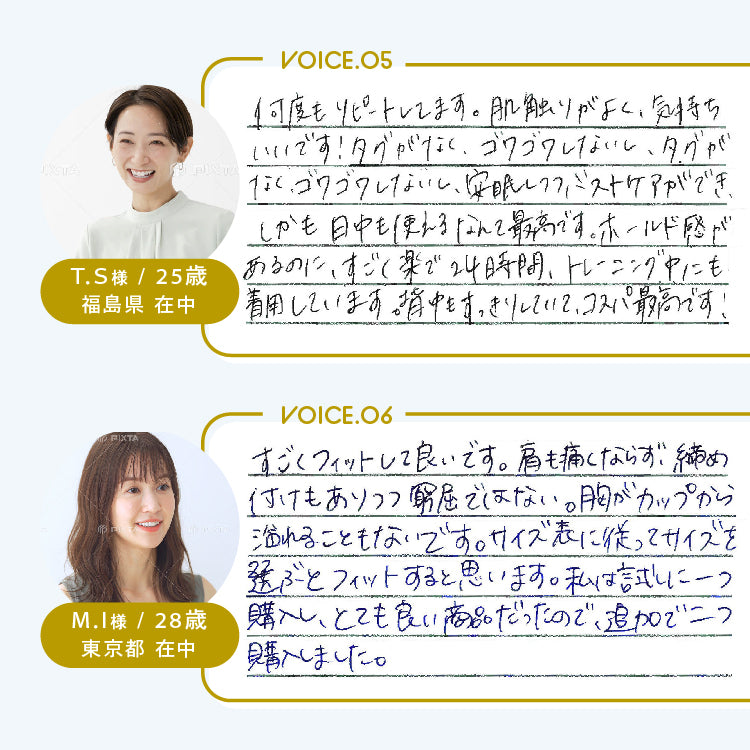 VOICE.05
何度もリピートしてます。肌触りがよく、気持ち
いいです!タグがなく、ゴワゴワしないし、タグが
なく、ゴワゴワしないし、安眠しつつバストケアができ、
しかも日中も使えるなんて最高です。ホールド感が
あるのに、すごく楽で24時間、トレーニング中にも
着用しています。背中もすっきりしていて、コスパ最高です!
T.S様 / 25歳
福島県 在中
VOICE.06
すごくフィットして良いです。肩も痛くならず、締め
付けもありつつ窮屈ではない。胸がカップから
溢れることもないです。サイズ表に従ってサイズを
選ぶとフィットすると思います。私は試しに一つ
購入し、とても良い商品だったので、追加で二つ
購入しました。
M.I様 / 28歳
東京都 在中
PIXTA
PIXTA
PIXTA